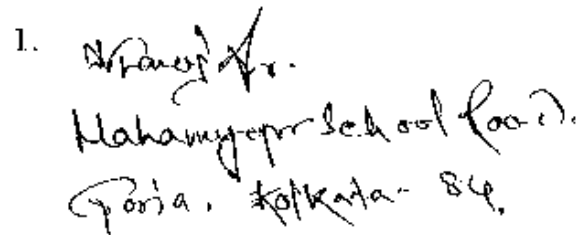 1.
Mahamyapur School Road.
Goria. Kolkata - 84.